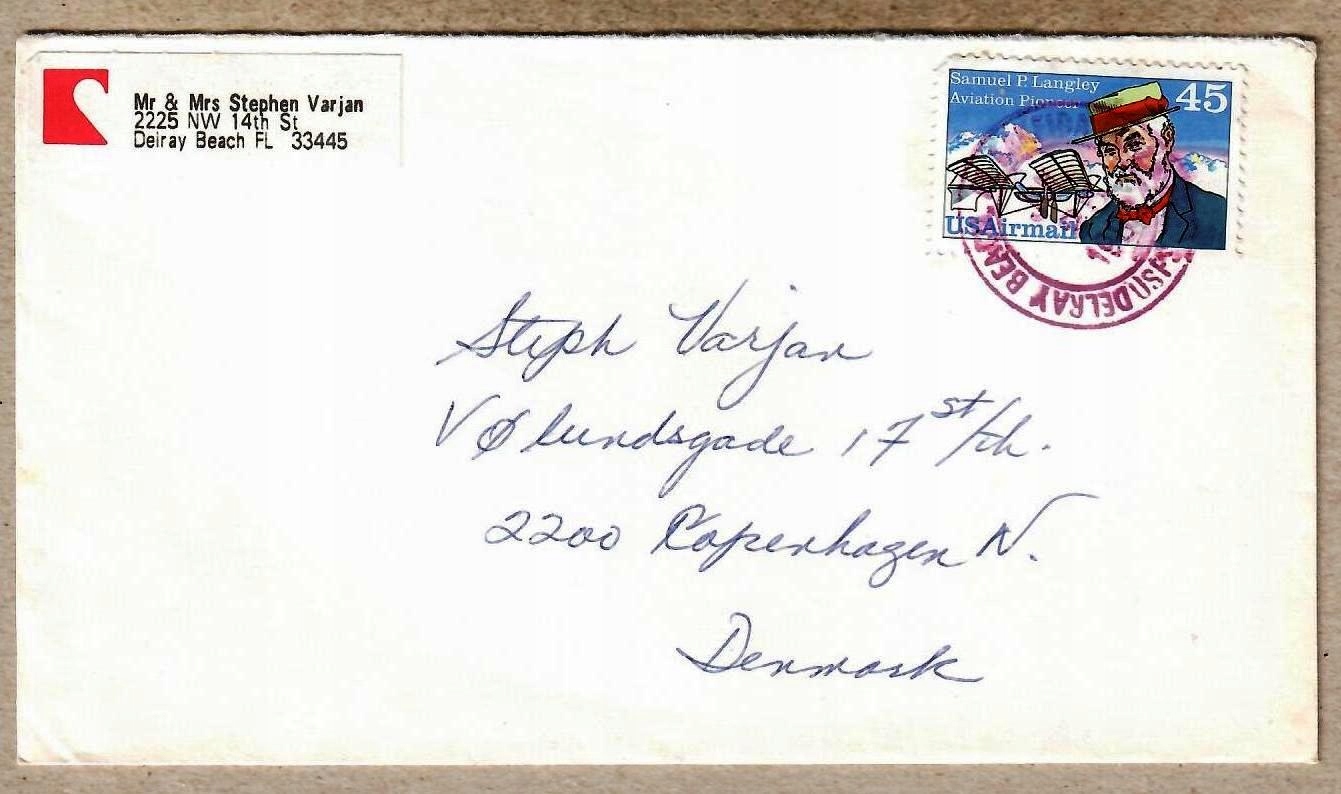 Mr & Mrs Stephen Varjan
2225 NW 14th St
Delray Beach FL 33445
Samuel P. Langley
Aviation Pioneer
45
USAirmail
DELRAY BEA
Steph Varjan
Vølundsgade 17 st/th.
2200 Copenhagen N.
Denmark